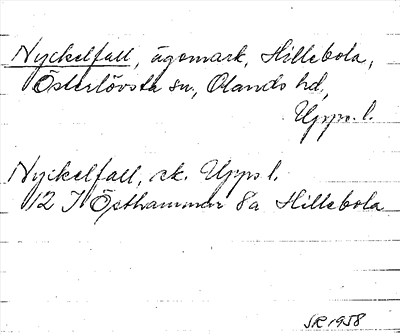 Nyckelfall, ägomark, Hillebola,
Österlövsta sn, Olands hd,
Upps. l.
Nyckelfall, ek. Upps l.
12 I Östhammar 8a Hillebola
SR 1958